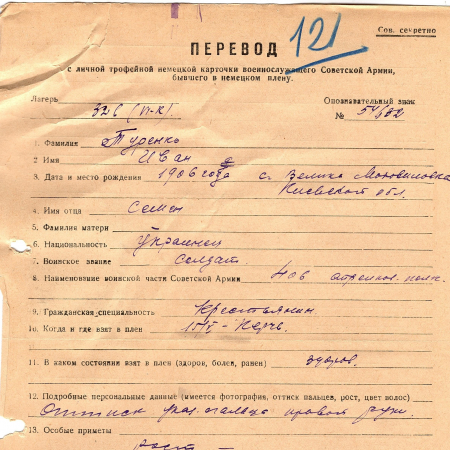 Сов. секретно
121
ПЕРЕВОД
с личной трофейной немецкой карточки военнослужащего Советской Армии,
бывшего в немецком плену.
Лагерь
Опознавательный знак
326 (VI-К)
№
1. Фамилия Туренко
2 Имя Иван
3. Дата и место рождения 1906 года с. Велика Мотовиловка
Киевской обл.
4. Имя отца Семен
5. Фамилия матери
6. Национальность Украинец
7. Воинское звание солдат
8. Наименование воинской части Советской Армии 406 стрелков. полк.
9. Гражданская специальность Крестьянин
10. Когда и где взят в плен Керчь.
11. В каком состоянии взят в плен (здоров, болен, ранен) здоров.
12. Подробные персональные данные (имеется фотография, оттиск пальцев, рост, цвет волос)
Оттиск указ. пальца правой руки.
13. Особые приметы
рост